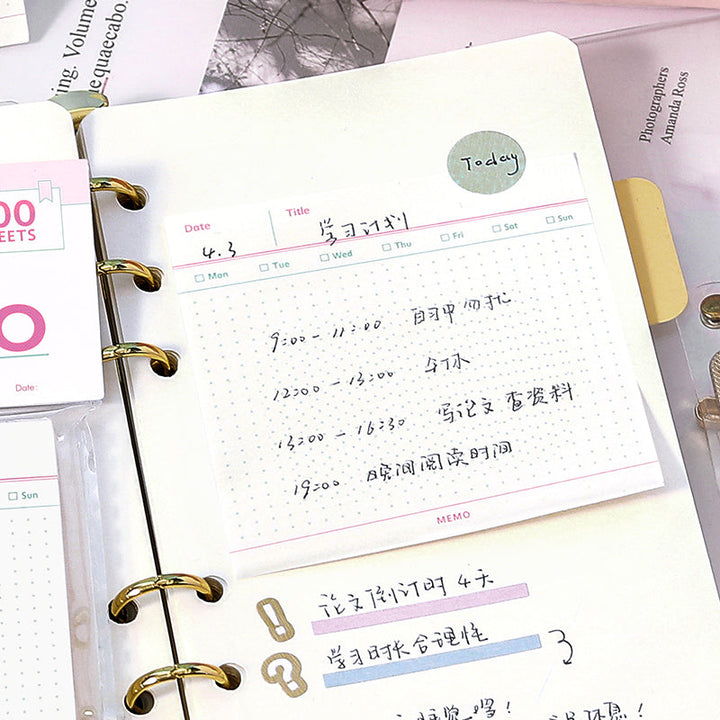 ing. Volume
nequaecabo.
Photographers
Amanda Ross
00
EETS
O
Date:
Sun
Today
Date
Title
4.3
学习计划
Mon Tue Wed Thu Fri Sat Sun
9:00-11:00 自习中勿扰
12:00-13:00 午休
13:00-16:30 写论文 查资料
19:00 晚间阅读时间
MEMO
! 论文倒计时4天
? 学习时长合理性